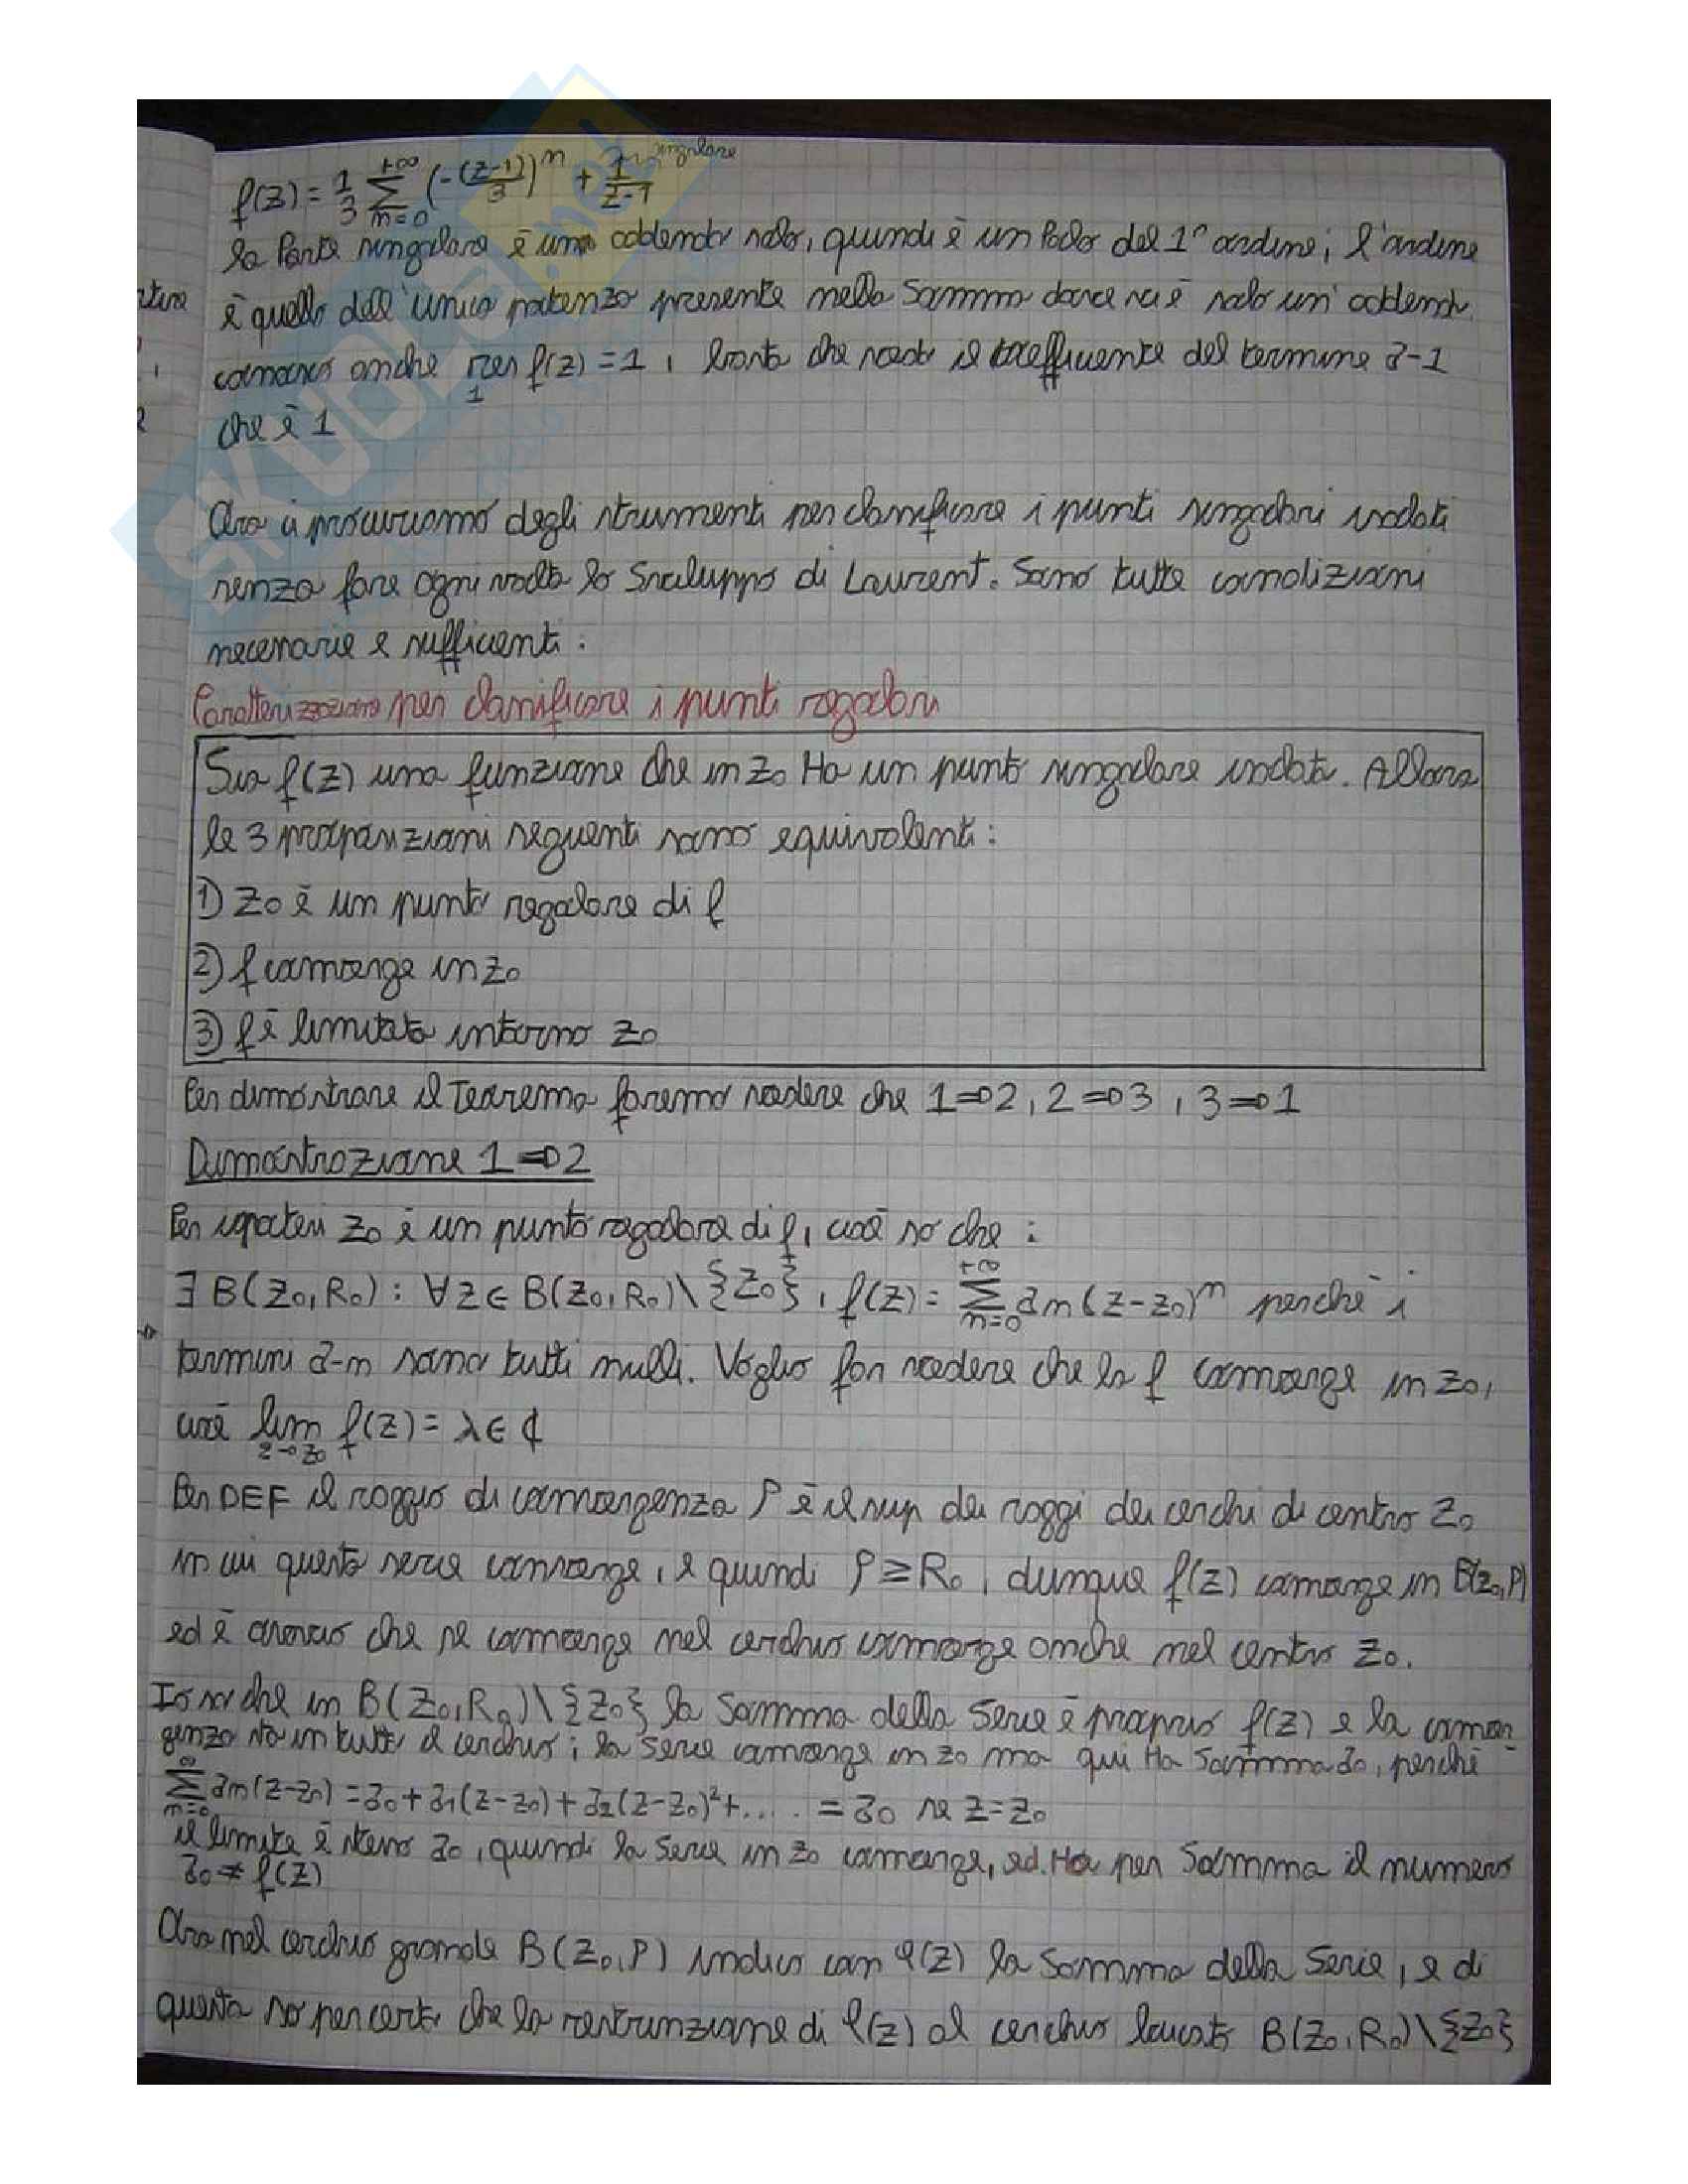 f(z) = 1/3 ∑_{n=0}^{+∞} (-(z-1)/3)^n + 1/(z-1) singolare
la Parte singolare è un addendo solo, quindi è un Polo del 1° ordine; l'ordine
è quello dell'unica potenza presente nella Somma dove vi è solo un addendo.
conosco anche res_1 f(z) = 1, basta che vedo il coefficiente del termine a-1
che è 1
Ora ci procuriamo degli strumenti per classificare i punti singolari isolati
senza fare ogni volta lo Sviluppo di Laurent. Sono tutte condizioni
necessarie e sufficienti:
Caratterizzazione per classificare i punti regolari
Sia f(z) una funzione che in z0 Ha un punto singolare isolato. Allora
le 3 proposizioni seguenti sono equivalenti:
1) z0 è un punto regolare di f
2) f converge in z0
3) f è limitata intorno z0
Per dimostrare il Teorema faremo vedere che 1⇒2, 2⇒3, 3⇒1
Dimostrazione 1⇒2
Per ipotesi z0 è un punto regolare di f, cioè so che:
∃ B(z0,R0): ∀z∈B(z0,R0)\{z0}, f(z) = ∑_{n=0}^{+∞} an(z-z0)^n perché i
termini a-n sono tutti nulli. Voglio far vedere che la f converge in z0,
cioè lim_{z→z0} f(z) = λ∈ℂ
Per DEF il raggio di convergenza ρ è il sup dei raggi dei cerchi di centro z0
in cui questa serie converge, e quindi ρ≥R0, dunque f(z) converge in B(z0,ρ)
ed è ovvio che se converge nel cerchio converge anche nel centro z0.
Io so che in B(z0,R0)\{z0} la Somma della Serie è proprio f(z) e la conver-
genza sta in tutto il cerchio; la serie converge in z0 ma qui Ha Somma a0, perché
∑_{n=0}^{∞} an(z-z0) = a0+a1(z-z0)+a2(z-z0)²+.... = a0 se z=z0
il limite è stesso a0, quindi la Serie in z0 converge, ed Ha per Somma il numero
a0 ≠ f(z)
Ora nel cerchio grande B(z0,ρ) indico con φ(z) la Somma della Serie, e di
questa so per certo che la restrizione di f(z) al cerchio bucato B(z0,R0)\{z0}